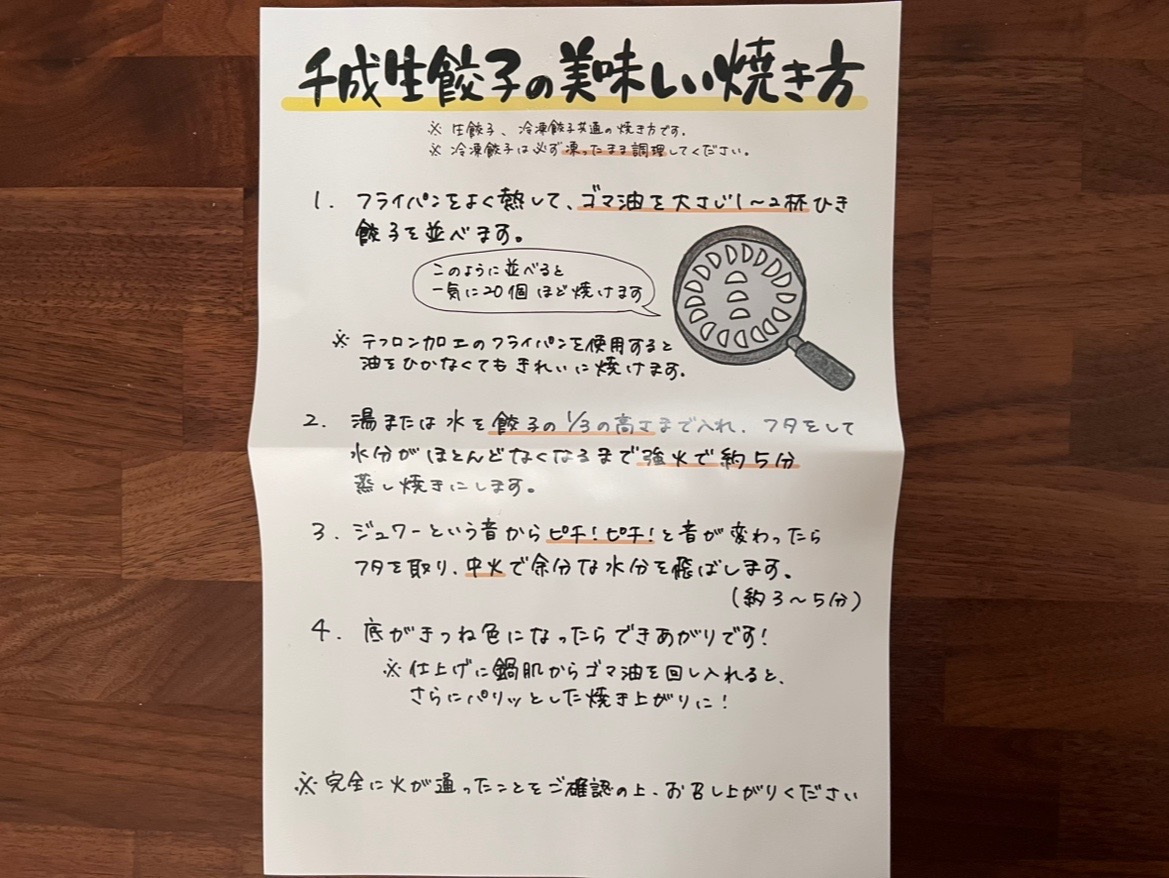 千成生餃子の美味しい焼き方
※ 生餃子、冷凍餃子共通の焼き方です。
※ 冷凍餃子は必ず凍ったまま調理してください。
1. フライパンをよく熱して、ゴマ油を大さじ1〜2杯ひき
餃子を並べます。
このように並べると
一気に20個ほど焼けます
※ テフロン加工のフライパンを使用すると
油をひかなくてもきれいに焼けます。
2. 湯または水を餃子の1/3の高さまで入れ、フタをして
水分がほとんどなくなるまで強火で約5分
蒸し焼きにします。
3. ジュワーという音からピチ!ピチ!と音が変わったら
フタを取り、中火で余分な水分を飛ばします。
(約3〜5分)
4. 底がきつね色になったらできあがりです!
※ 仕上げに鍋肌からゴマ油を回し入れると、
さらにパリッとした焼き上がりに!
※ 完全に火が通ったことをご確認の上、お召し上がりください